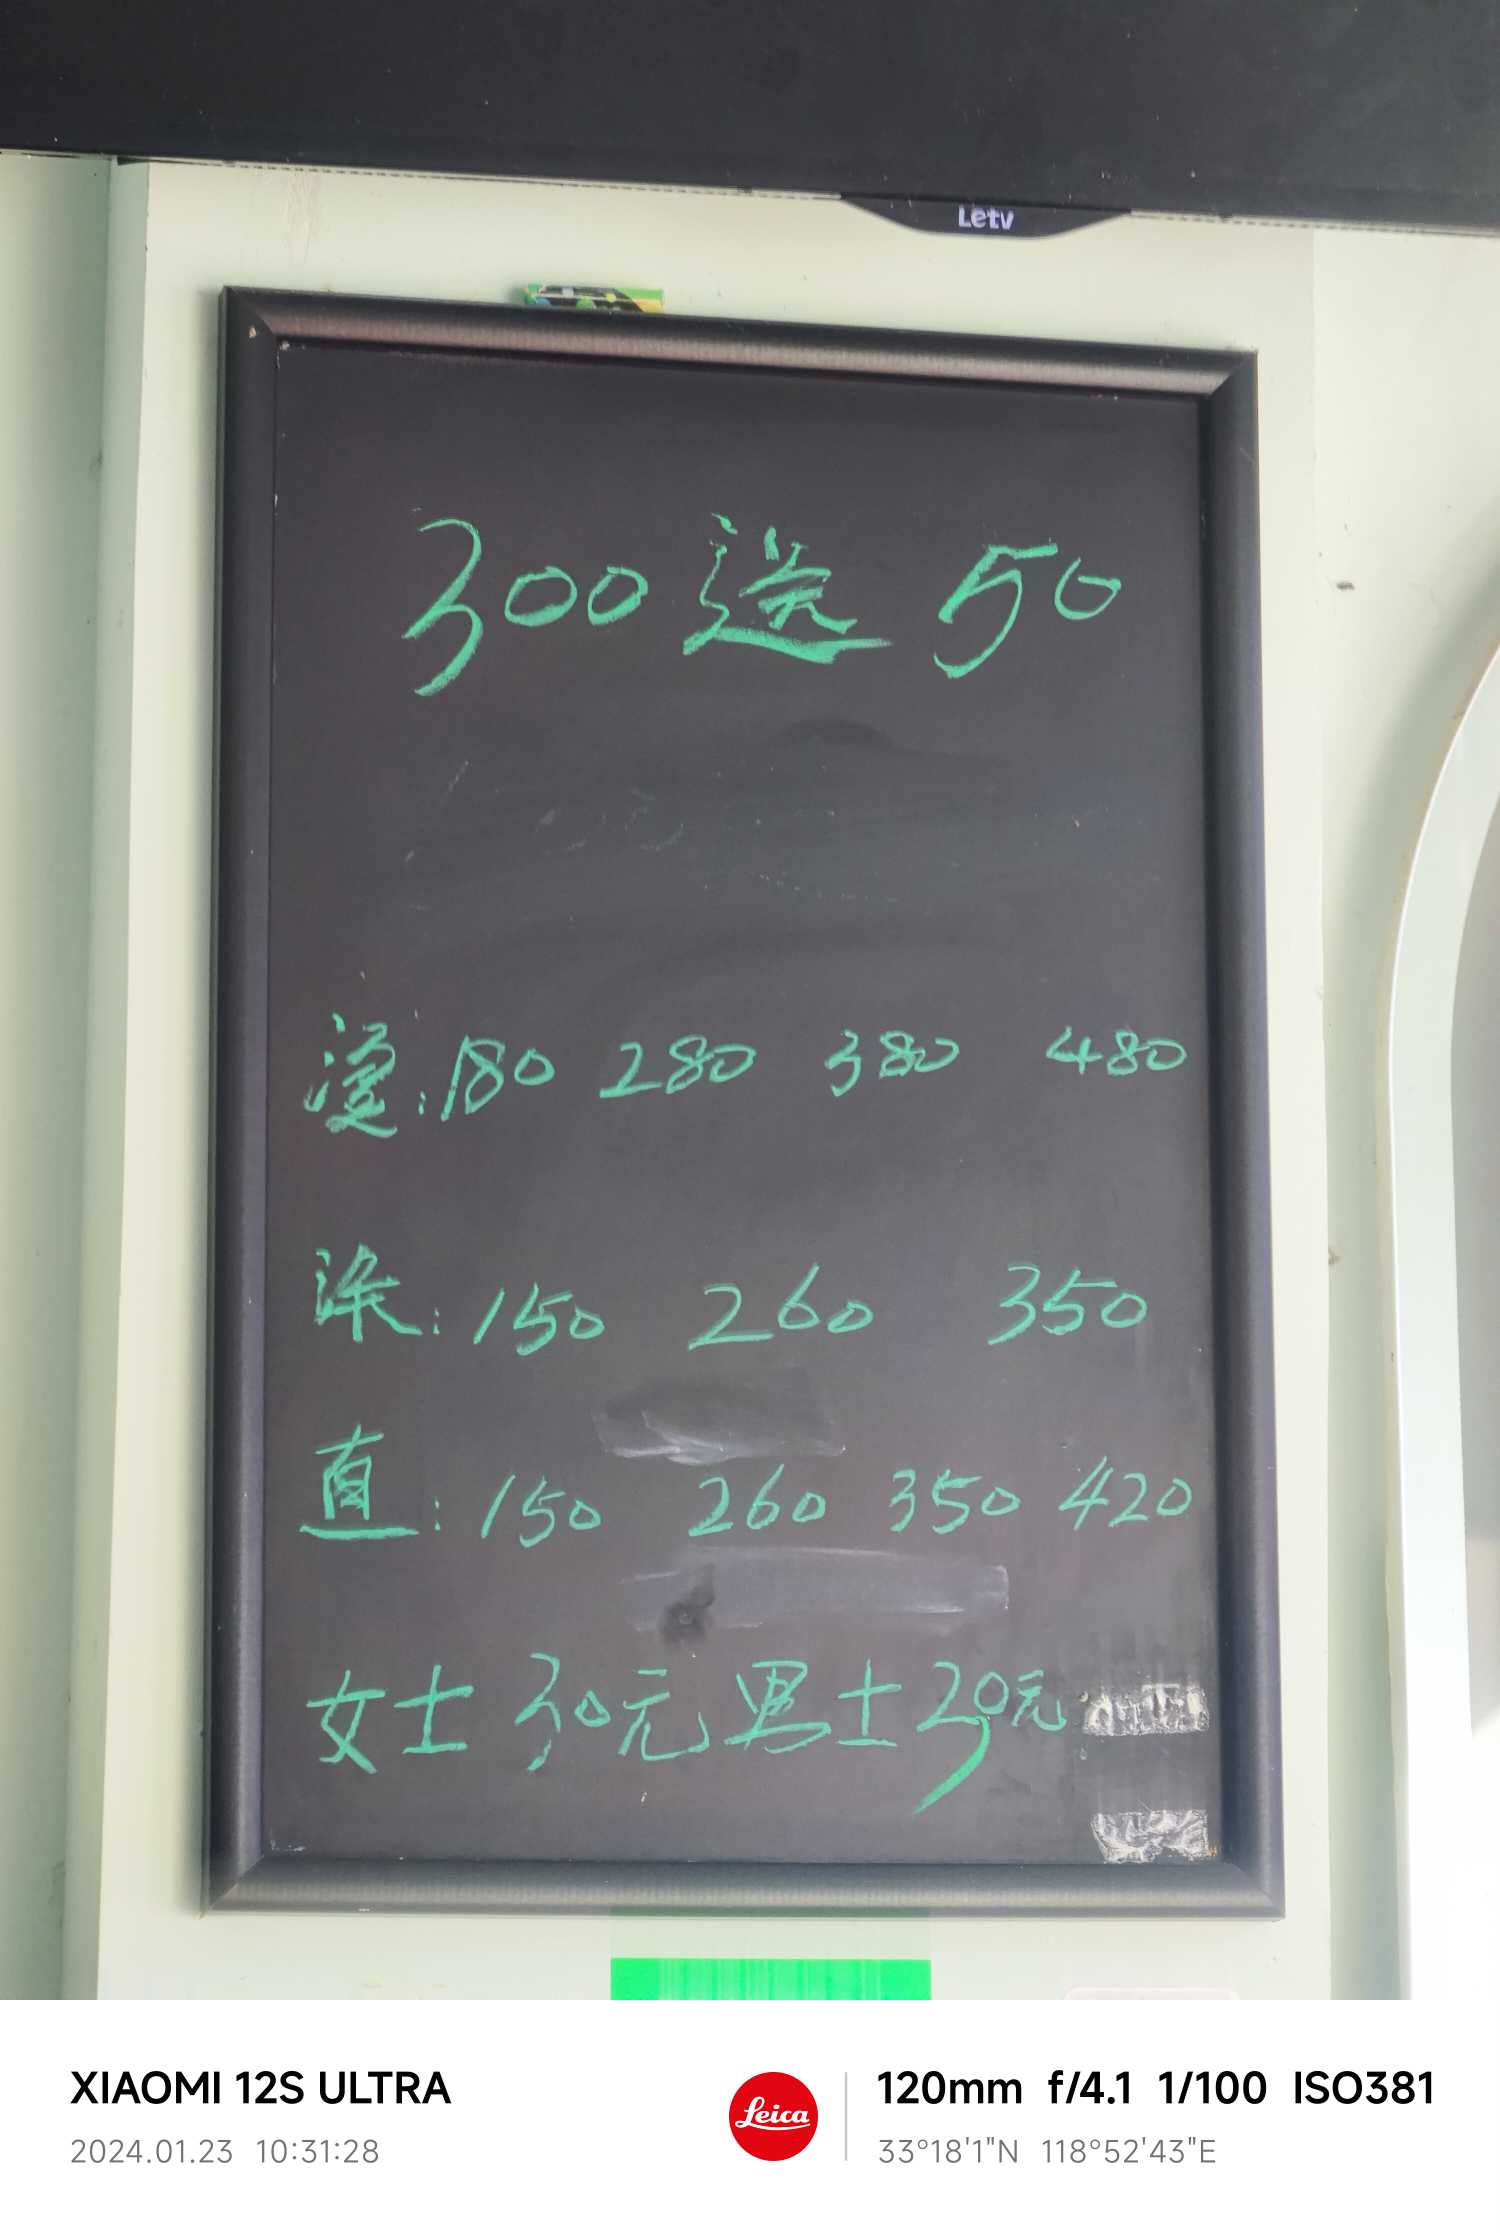 Letv
300送50
烫:180 280 380 480
染:150 260 350
直:150 260 350 420
女士30元 男士30元
XIAOMI 12S ULTRA
2024.01.23 10:31:28
Leica
120mm f/4.1 1/100 ISO381
33°18'1"N 118°52'43"E